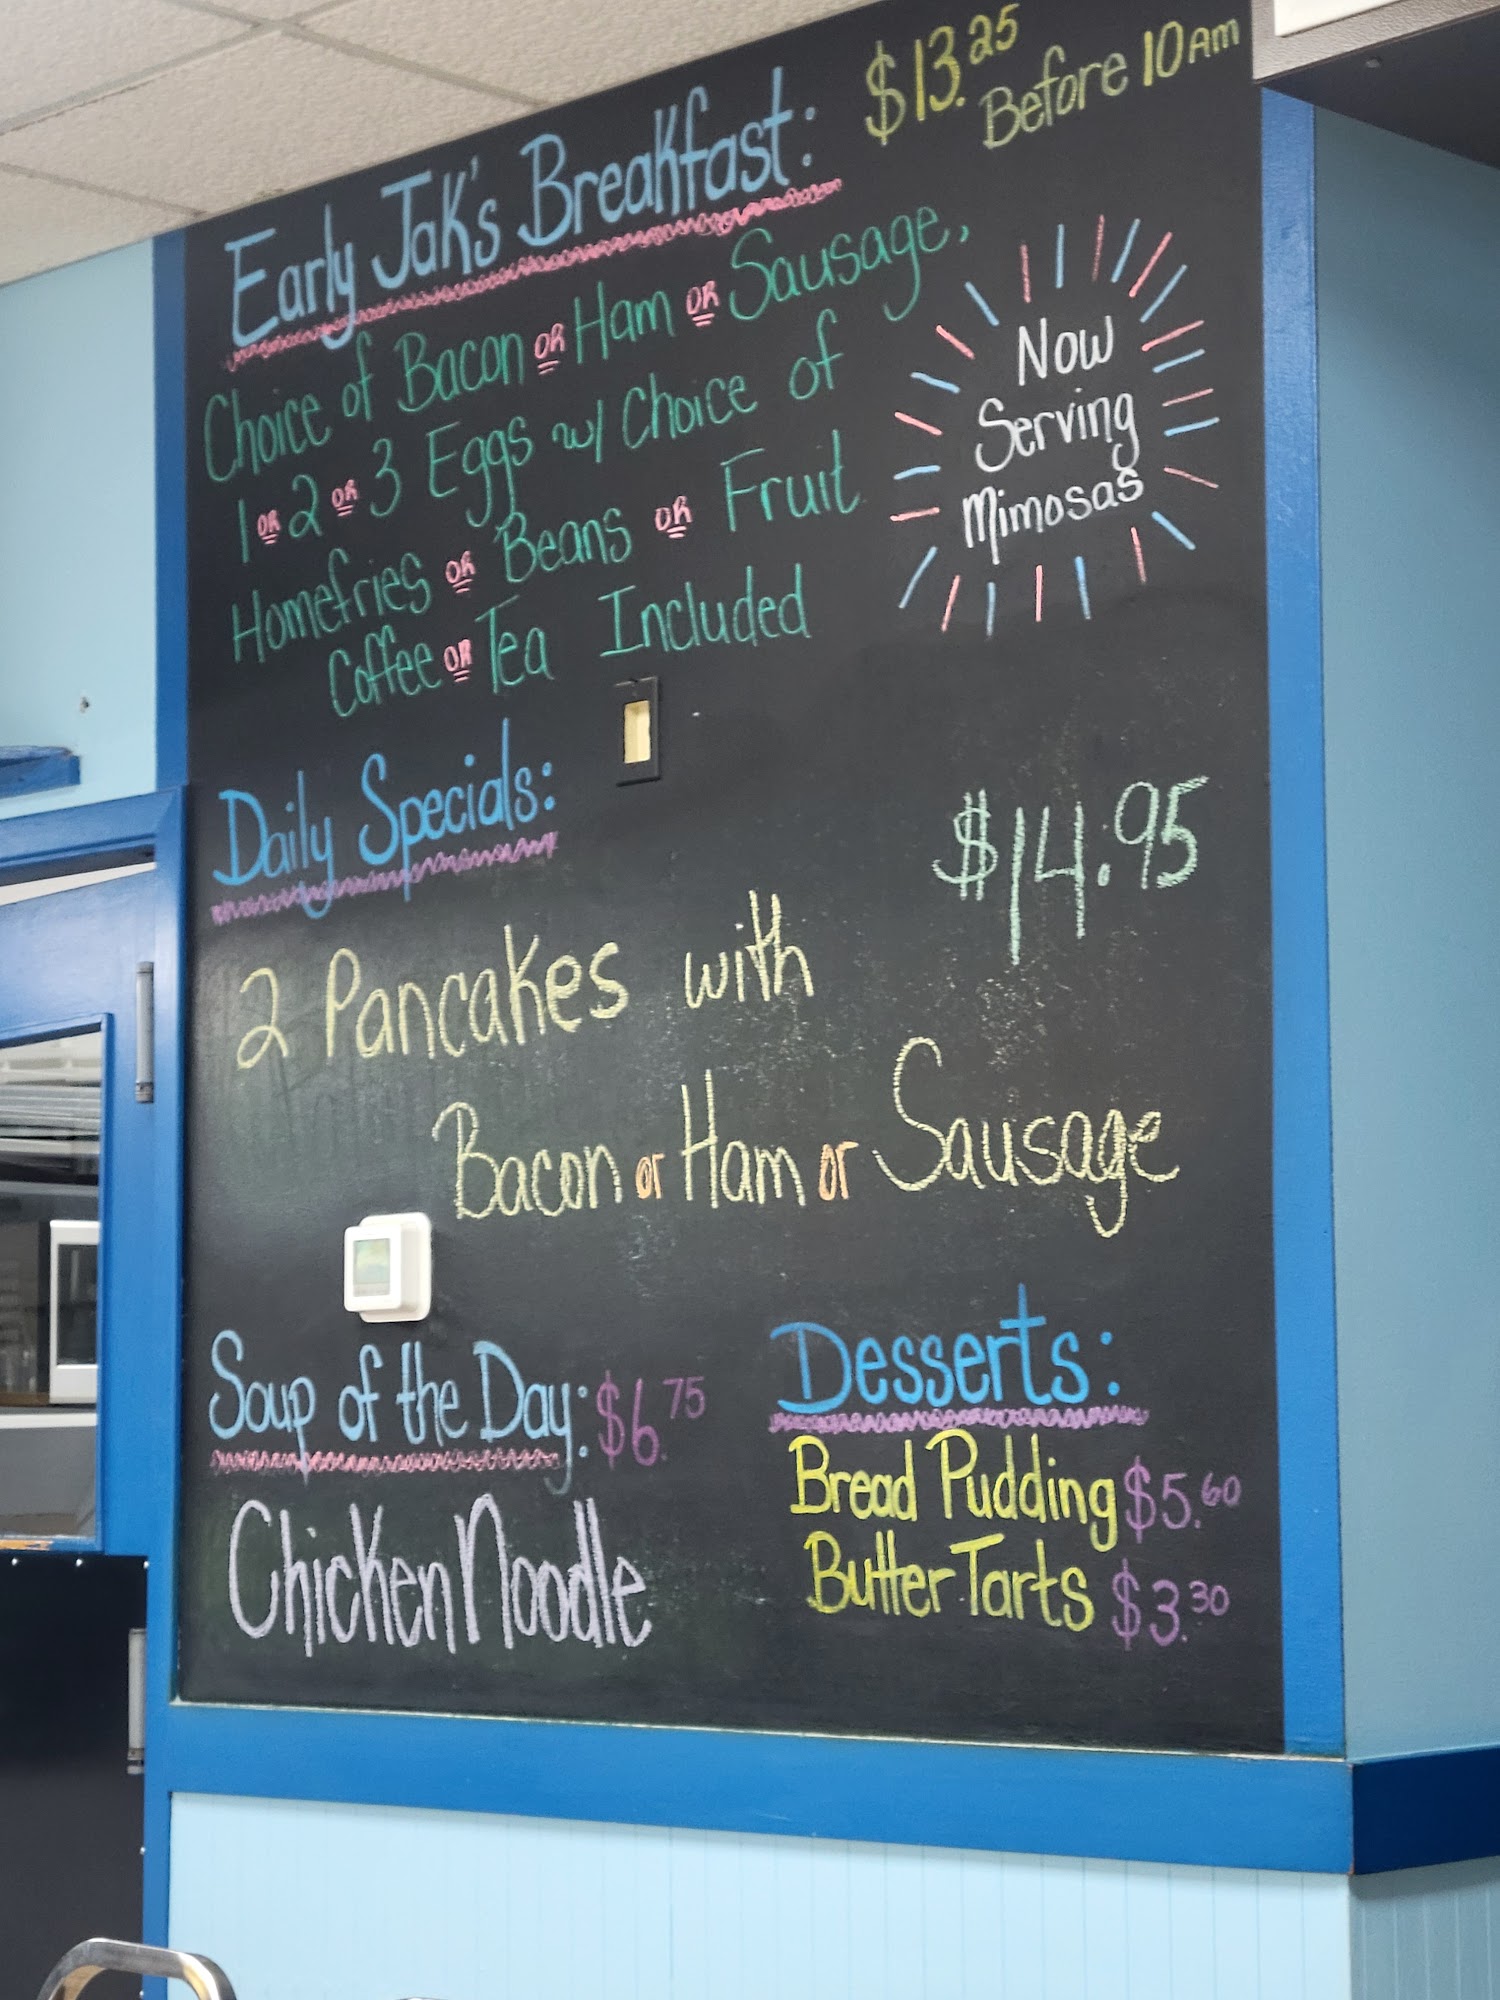 Early Jak's Breakfast: $13.25
Before 10Am
Choice of Bacon or Ham or Sausage,
1 or 2 or 3 Eggs w/ Choice of
Homefries or Beans or Fruit
Coffee or Tea Included
Now
Serving
Mimosas
Daily Specials:
$14.95
2 Pancakes with
Bacon or Ham or Sausage
Soup of the Day: $6.75
Chicken Noodle
Desserts:
Bread Pudding $5.60
Butter Tarts $3.30